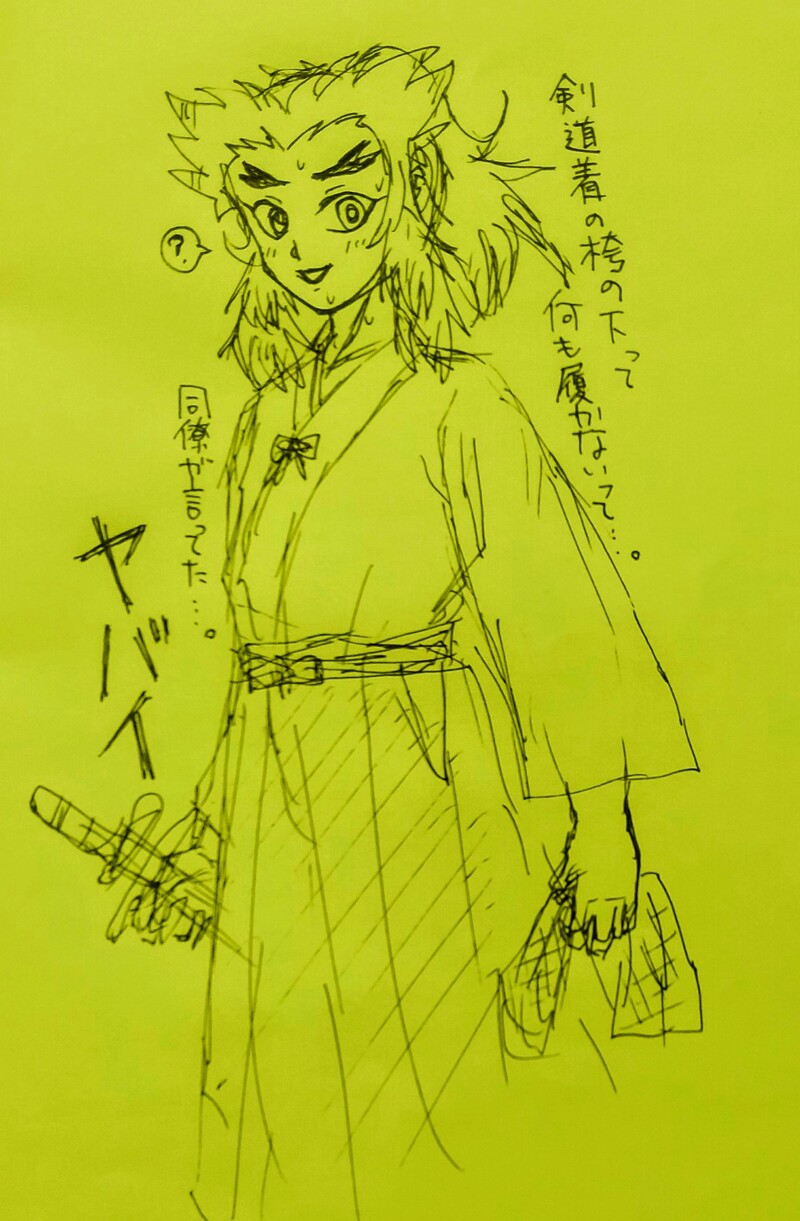 剣道着の袴の下って
何も履かないって…。
同僚が言ってた…。
ヤバイ
?